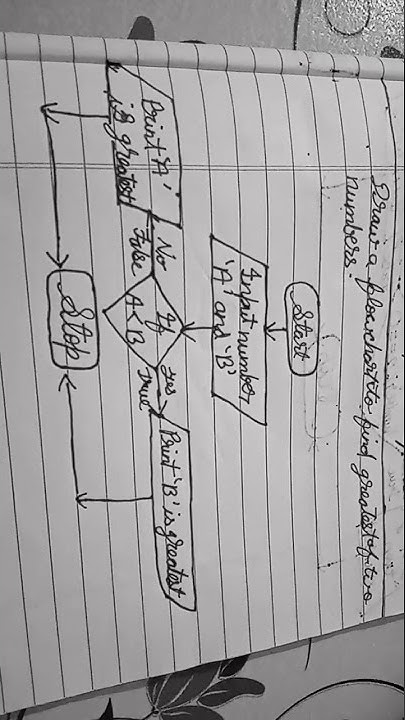 Draw a flowchart to find greatest of two
numbers.
Start
Input number
'A' and 'B'
If
A < B
No
False
Yes
True
Print 'A'
is greatest
Print 'B' is greatest
Stop